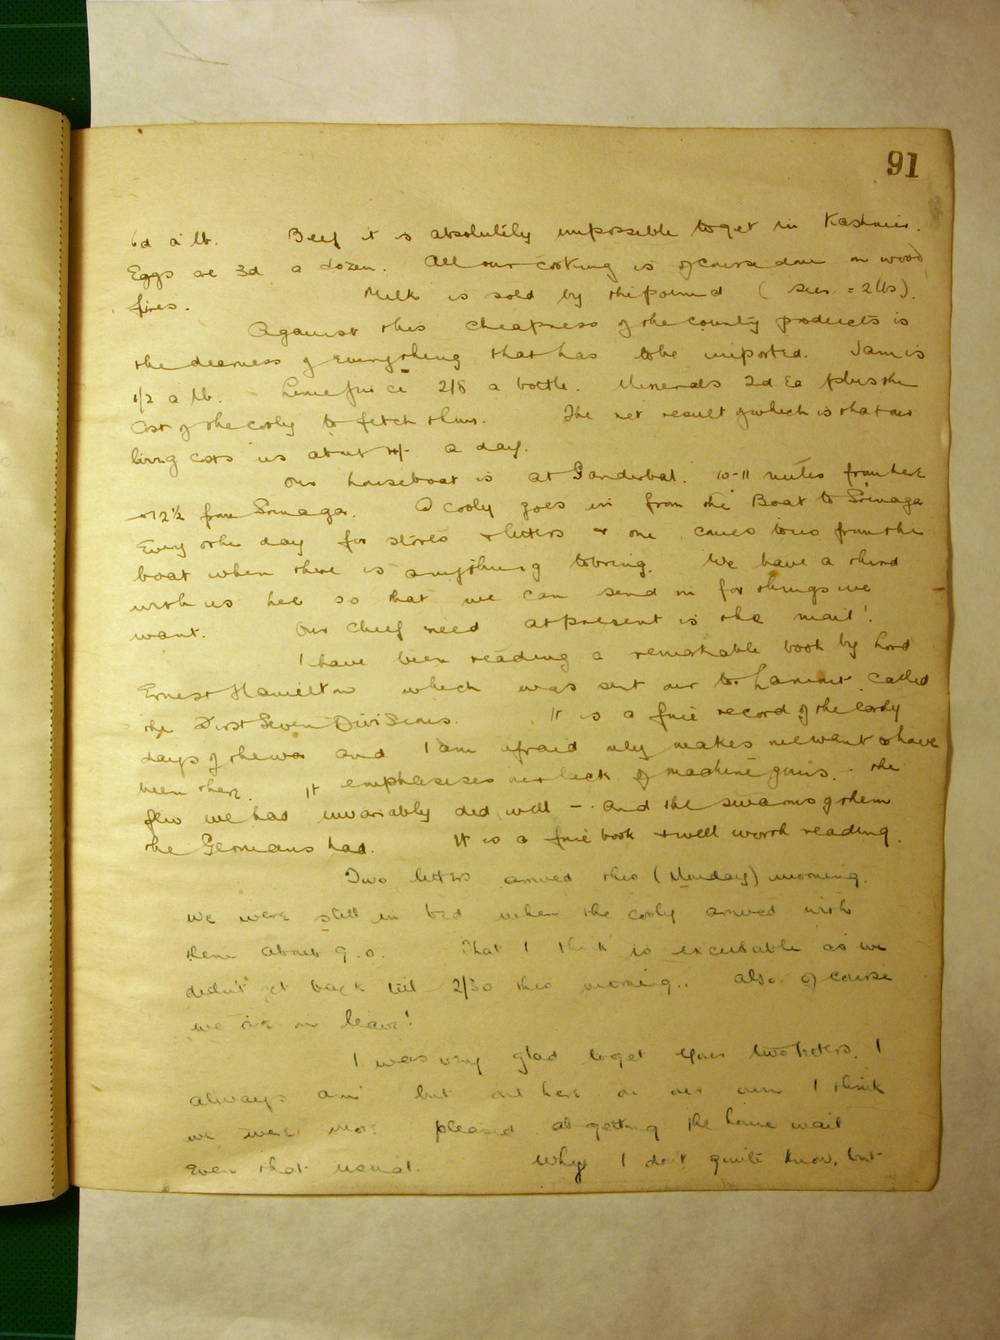 91
6d a lb. Beef it is absolutely impossible to get in Kashmir.
Eggs are 3d a dozen. All our cooking is of course done on wood
fires. Milk is sold by the pound ( seer = 2 lbs).
Against this cheapness of the country products is
the dearness of everything that has to be imported. Jam is
1/2 a lb. Lime juice 2/8 a bottle. Minerals 2d ea plus the
cost of the cooly to fetch them. The net result of which is that our
living costs us about a day.
Our houseboat is at Ganderbal. 10-11 miles from here
12½ from Srinagar. A cooly goes in from the Boat to Srinagar
every other day for stores & letters & one comes to us from the
boat when there is anything to bring. We have a third
with us here so that we can send in for things we
want. Our chief need at present is the mail!
I have been reading a remarkable book by Lord
Ernest Hamilton which was sent out to called
the First Seven Divisions. It is a fine record of the early
days of the war and I am afraid only makes me want to have
been there. It emphasises our lack of machine guns. The
few we had invariably did well – and the swarms of them
the Germans had. It is a fine book & well worth reading.
Two letters arrived this (Monday) morning.
We were still in bed when the cooly arrived with
them about 9.0. That I think is excusable as we
didn't get back till 2/30 this morning. Also of course
we are on leave!
I was very glad to get your two letters. I
always am but out here on our own I think
we were more pleased at getting the home mail
even than usual. Why I don't quite know, but